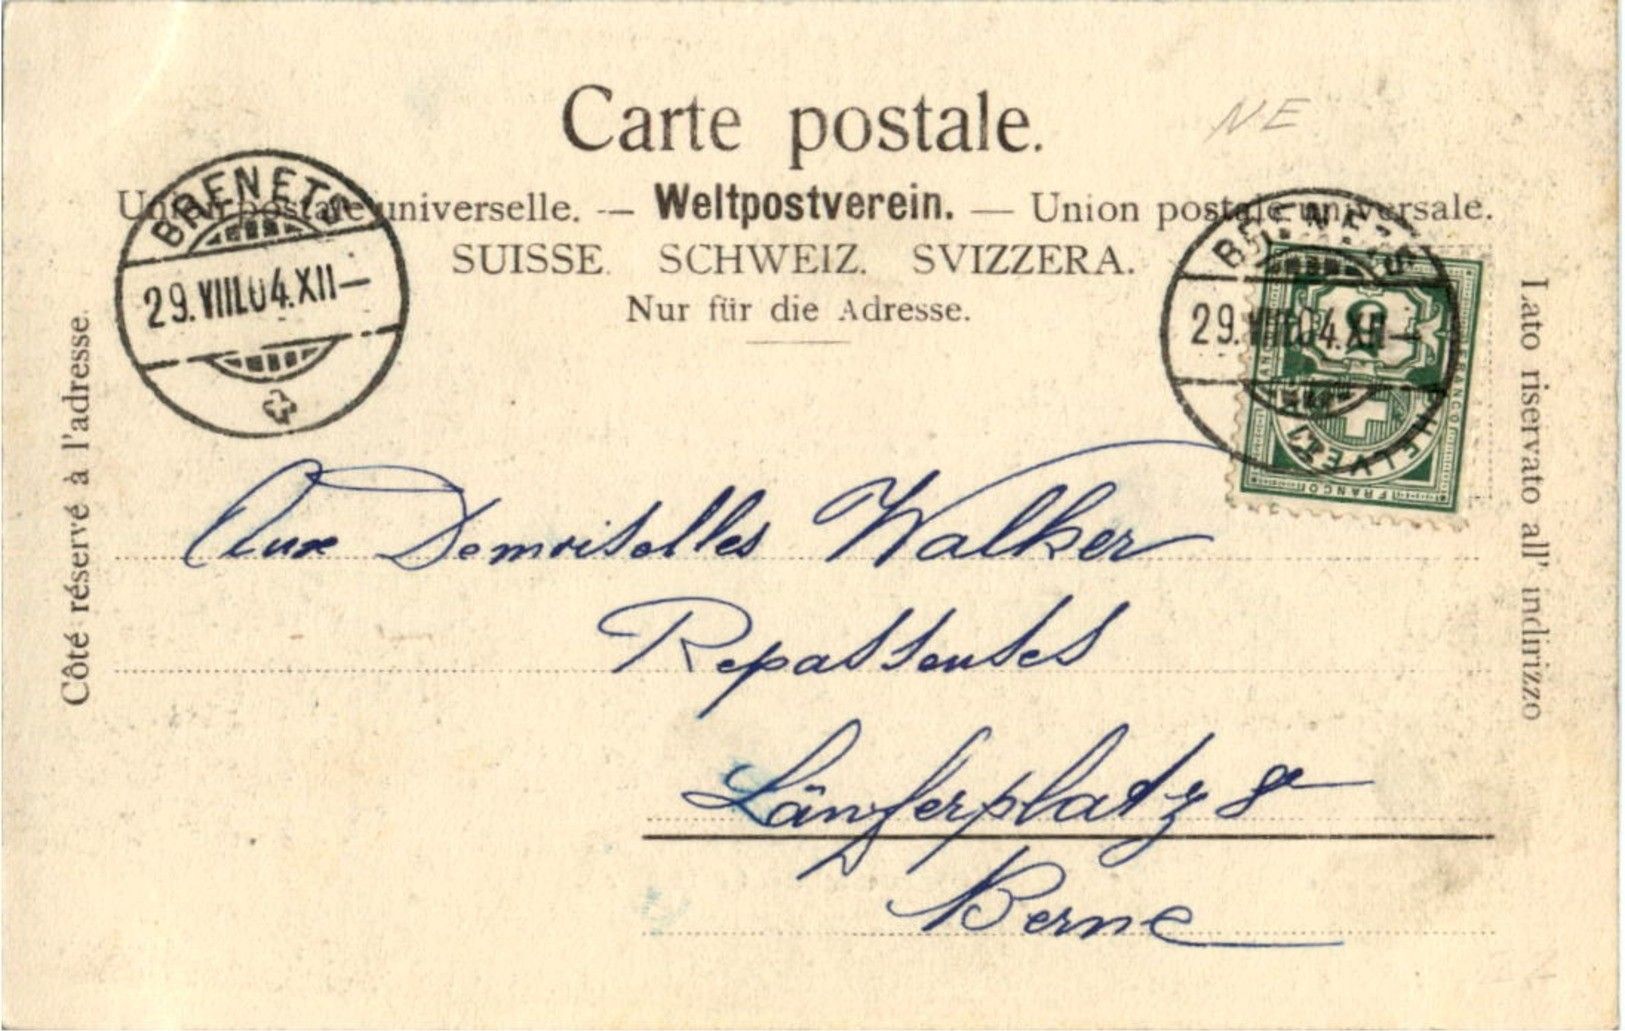 Carte postale.
NE
Union postale universelle. — Weltpostverein. — Union postale universale.
SUISSE. SCHWEIZ. SVIZZERA.
Nur für die Adresse.
BRENETS
29.VIII.04.XII—
BRENETS
29.VIII.04.XII—
5
HELVETIA
FRANCO
FRANCO
Côté réservé à l'adresse.
Lato riservato all' indirizzo
Aux Demoiselles Walker
Repasseuses
Länferplatz 8
Berne